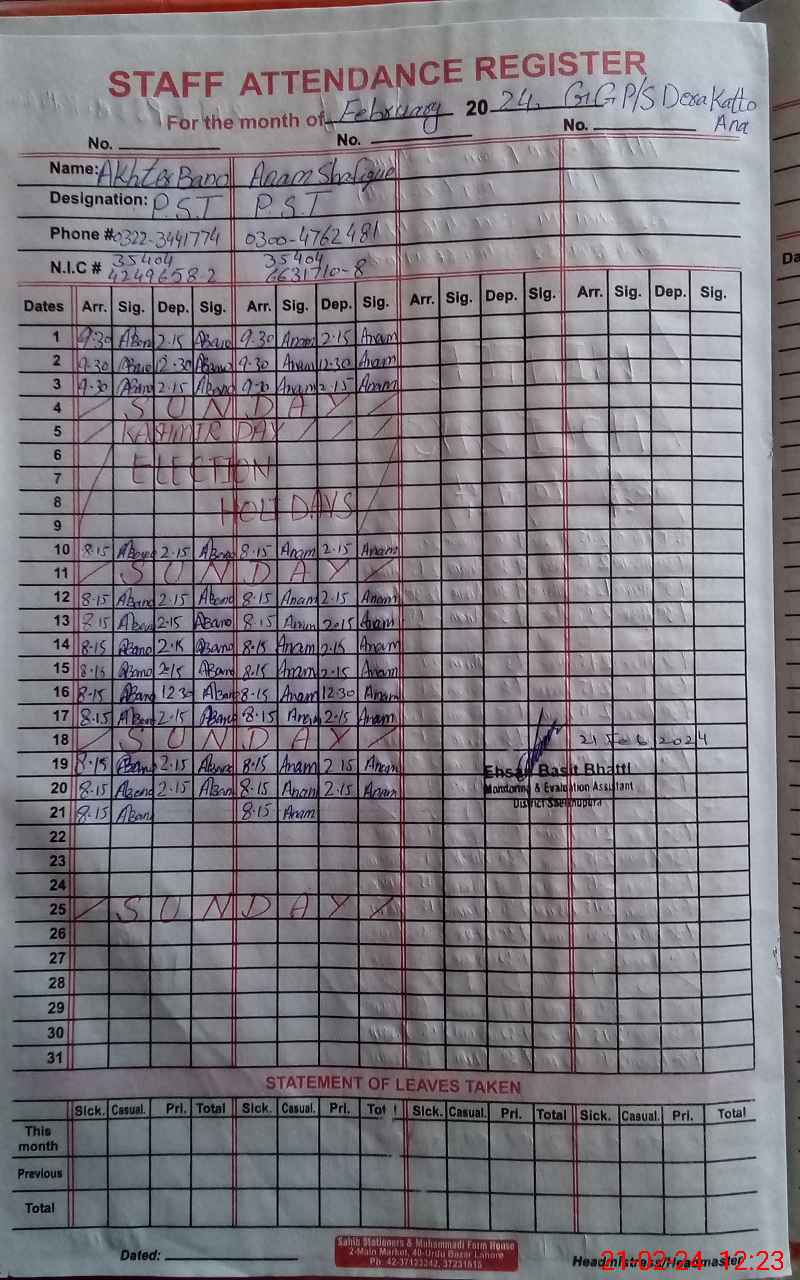 STAFF ATTENDANCE REGISTER
For the month of February 2024. GGP/S Dera Katto Ana
No. No. No.
Name: Akhter Bano Anam Shafique
Designation: P.S.T P.S.T
Phone # 0322-3441774 0300-4762481
N.I.C # 35404 4249658-2 35404 6631710-8
Dates Arr. Sig. Dep. Sig. Arr. Sig. Dep. Sig. Arr. Sig. Dep. Sig. Arr. Sig. Dep. Sig.
1 9.30 ABano 2.15 ABano 9.30 Anam 2.15 Anam
2 9.30 ABano 12.30 ABano 9.30 Anam 12.30 Anam
3 9.30 ABano 2.15 ABano 9.30 Anam 2.15 Anam
4 SUNDAY
5 KASHMIR DAY
6
7 ELECTION
8 HOLIDAYS
9
10 8.15 ABano 2.15 ABano 8.15 Anam 2.15 Anam
11 SUNDAY
12 8.15 ABano 2.15 ABano 8.15 Anam 2.15 Anam
13 8.15 ABano 2.15 ABano 8.15 Anam 2.15 Anam
14 8.15 ABano 2.15 ABano 8.15 Anam 2.15 Anam
15 8.15 ABano 2.15 ABano 8.15 Anam 2.15 Anam
16 8.15 ABano 12.30 ABano 8.15 Anam 12.30 Anam
17 8.15 ABano 2.15 ABano 8.15 Anam 2.15 Anam
18 SUNDAY 21 Feb 2024
19 8.15 ABano 2.15 ABano 8.15 Anam 2.15 Anam
Ehsan Basit Bhatti
20 8.15 ABano 2.15 ABano 8.15 Anam 2.15 Anam
Monitoring & Evaluation Assistant
District Sheikhupura
21 8.15 ABano 8.15 Anam
22
23
24
25 SUNDAY
26
27
28
29
30
31
STATEMENT OF LEAVES TAKEN
Sick. Casual. Pri. Total Sick. Casual. Pri. Total Sick. Casual. Pri. Total Sick. Casual. Pri. Total
This month
Previous
Total
Dated:
Sahib Stationers & Muhammadi Form House
2-Main Market, 40-Urdu Bazar Lahore
Ph. 42-37123242, 37231615
Headmistress/Headmaster
21-02-24 12:23